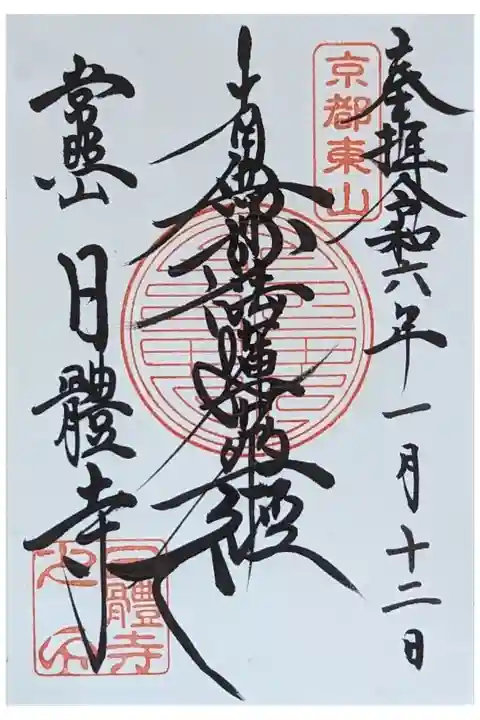 奉拝令和六年一月十二日
京都東山
南無妙法蓮華經
常照山 日體寺
日體寺
之印